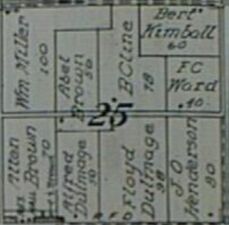 Wm Miller
100
Abel
Brown
B Cline
78
Bert
Kimball
60
F C
Ward
40
25
Alton
Brown
70
Alfred
Dulmage
Floyd
Dulmage
J O
Henderson
80